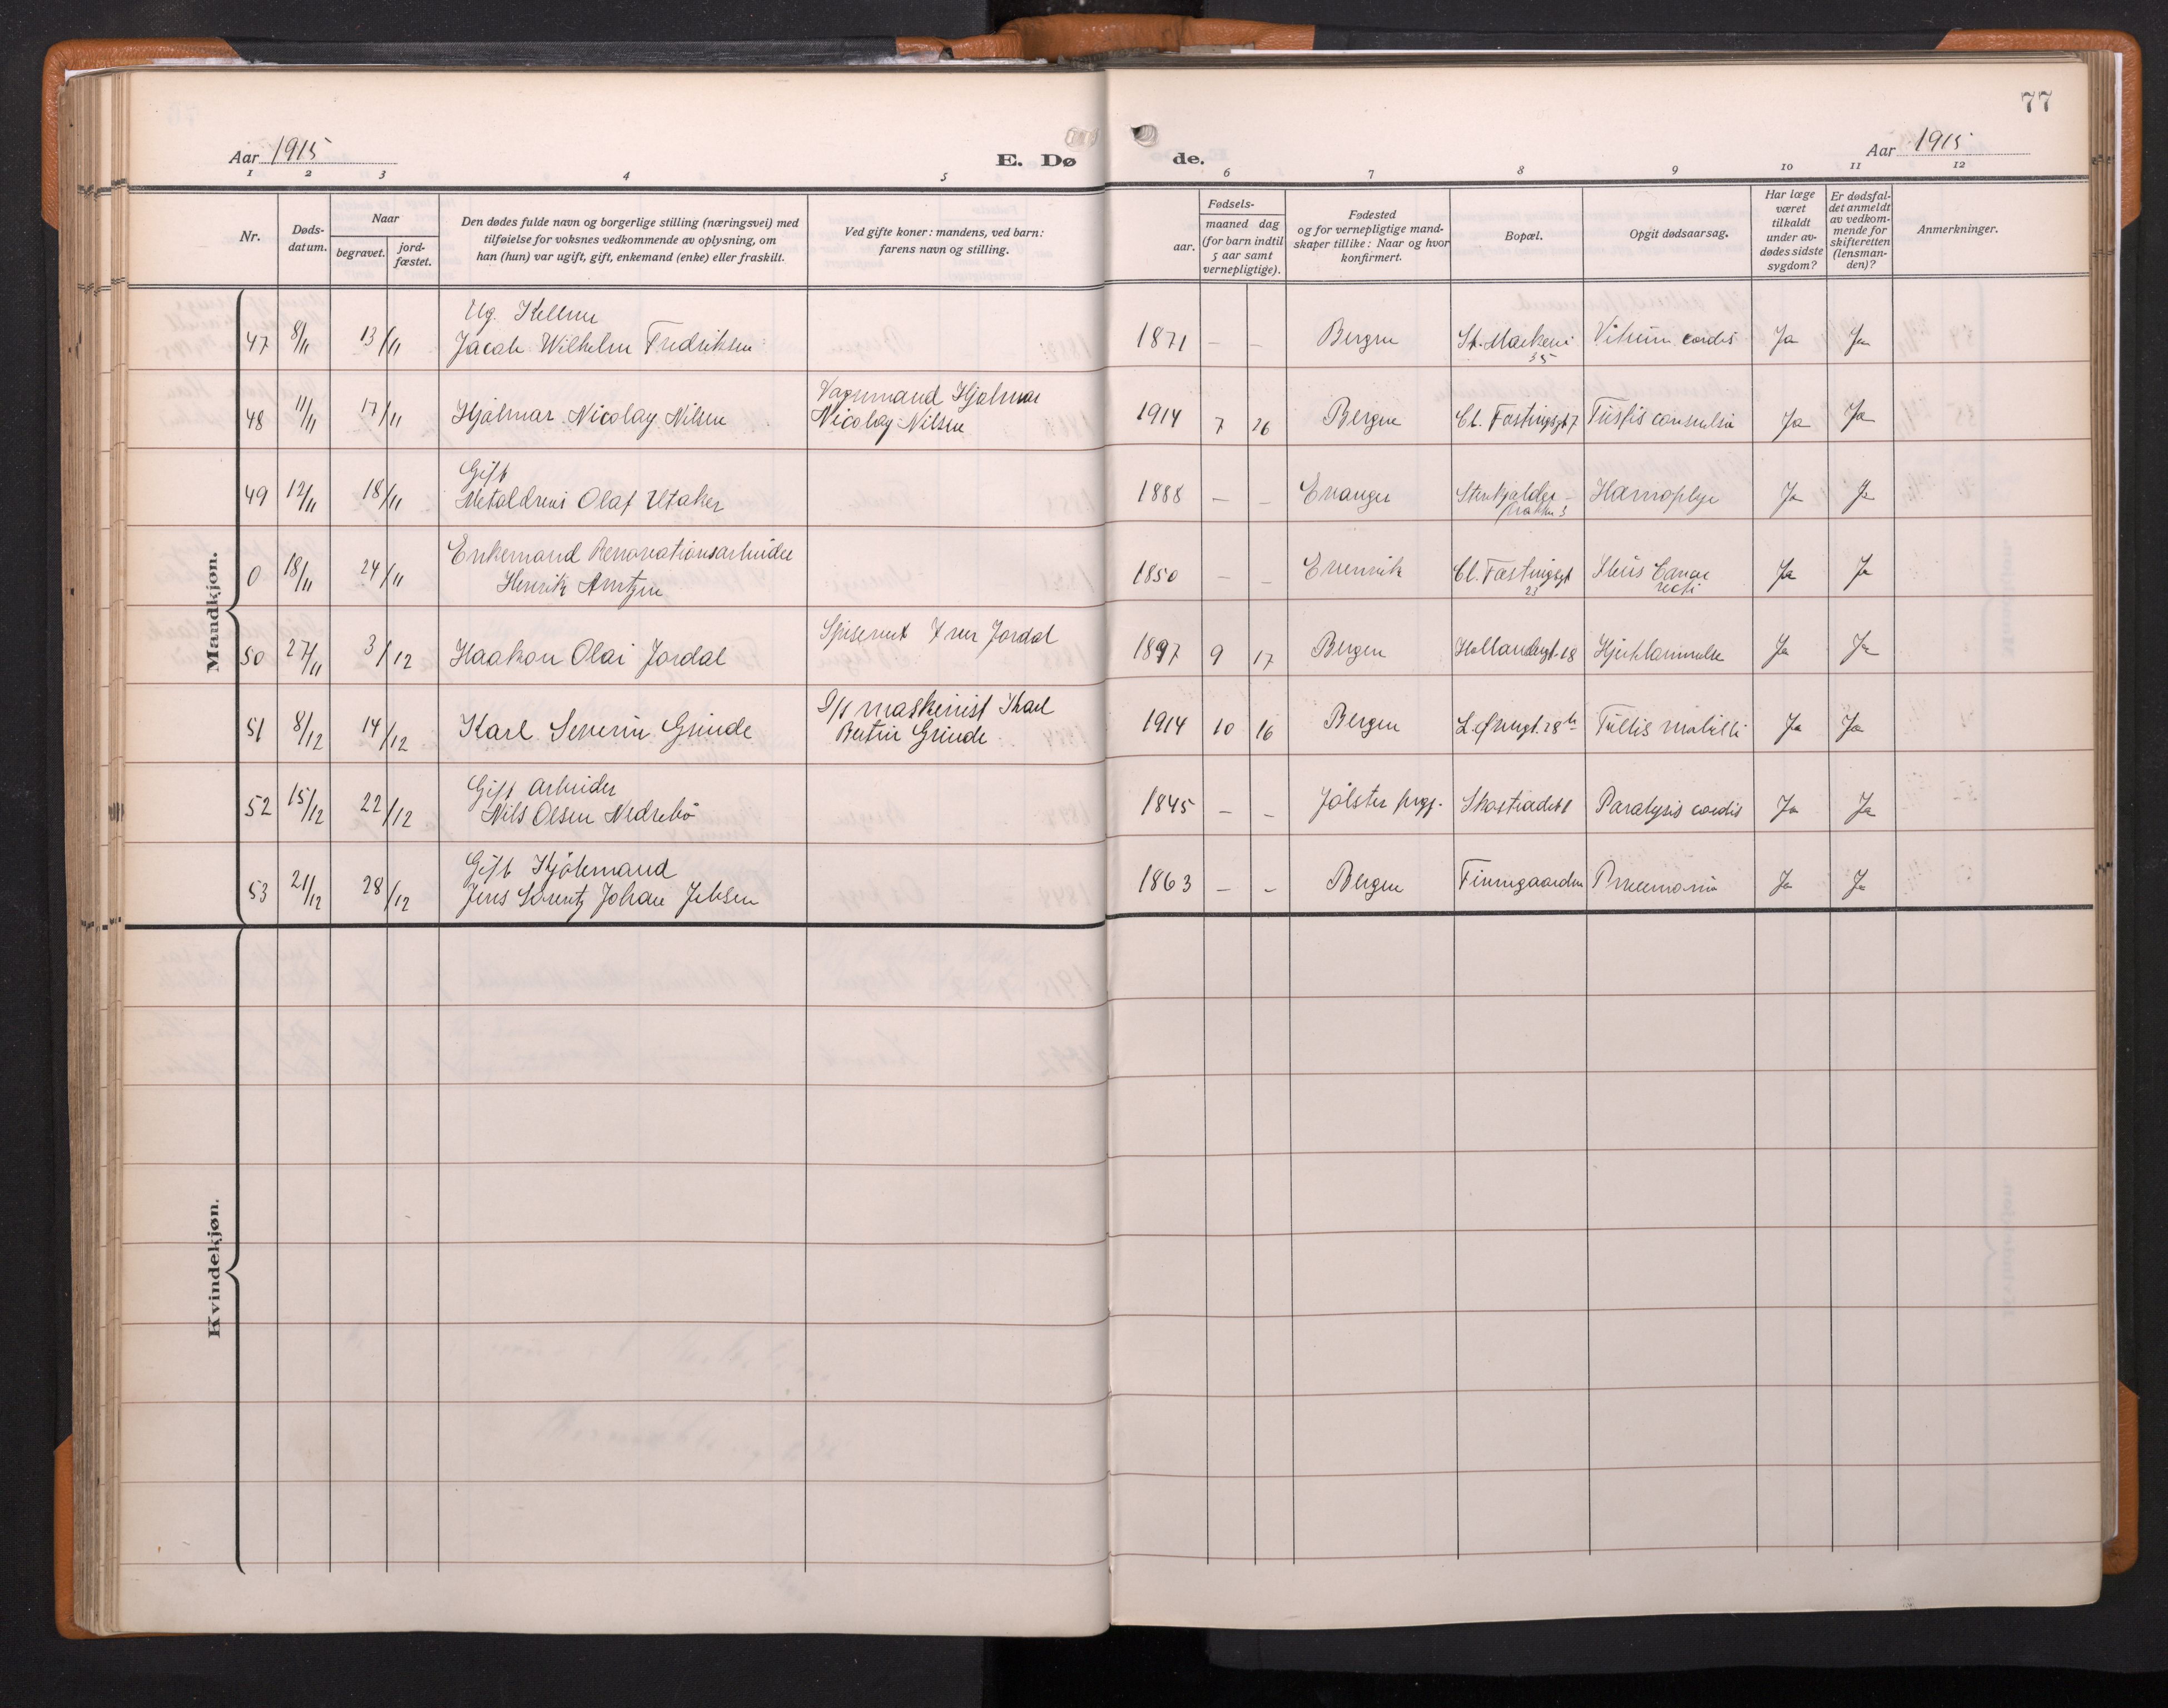 77
Aar 1915
E. Dø
de.
Aar 1915
1 2 3 4 5 6 7 8 9 10 11 12
Nr.
Døds-
datum.
Naar
begravet.
jord-
fæstet.
Den dødes fulde navn og borgerlige stilling (næringsvei) med
tilføielse for voksnes vedkommende av oplysning, om
han (hun) var ugift, gift, enkemand (enke) eller fraskilt.
Ved gifte koner: mandens, ved barn:
farens navn og stilling.
Fødsels-
aar.
maaned dag
(for barn indtil
5 aar samt
vernepligtige).
Fødested
og for vernepligtige mand-
skaper tillike: Naar og hvor
konfirmert.
Bopæl.
Opgit dødsaarsag.
Har læge
været
tilkaldt
under av-
dødes sidste
sygdom?
Er dødsfal-
det anmeldt
av vedkom-
mende for
skifteretten
(lensman-
den)?
Anmerkninger.
Mandkjøn.
Ug. Kellner
47 8/11 13/11 Jacob Wilhelm Fredriksen 1871 – – Bergen St. Markevei Vitium cordis Ja Ja
35
Vognmand Hjalmar
48 11/11 17/11 Hjalmar Nicolay Nilsen Nicolay Nilsen 1914 7 26 Bergen Cl. Fastingsgt 7 Tussis convulsiva Ja Ja
Gift
49 12/11 18/11 Metaldreier Olaf Utaker 1888 – – Evanger Stenkjelder- Ja Ja
bakken 3
Enkemand Renovationsarbeider
0 18/11 24/11 Henrik Arntzen 1850 – – Evenvik Cl. Fastingsgt Ileus Cancer Ja Ja
23 recti
50 27/11 3/12 Haakon Olai Jordal Spisevert Iver Jordal 1897 9 17 Bergen Hollandergt. 18 Hjertelammelse Ja Ja
D/S maskinist Karl
51 8/12 14/12 Karl Severin Grinde Bertin Grinde 1914 10 16 Bergen L. Øvregt. 28 b Ja Ja
Gift Arbeider
52 15/12 22/12 Nils Olsen Nedrebö 1845 – – Jölster prgj. Skostrædet 8 Paralysis cordis Ja Ja
Gift Kjøkmand
53 21/12 28/12 Jens Lorentz Johan Jebsen 1863 – – Bergen Finnegaarden Pneumonia Ja Ja
Kvindekjøn.